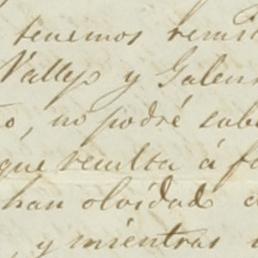 tenemos remit
Vallejo y Galen
o, no podré sab
que resulta á fa
han olvidad
, y mientras